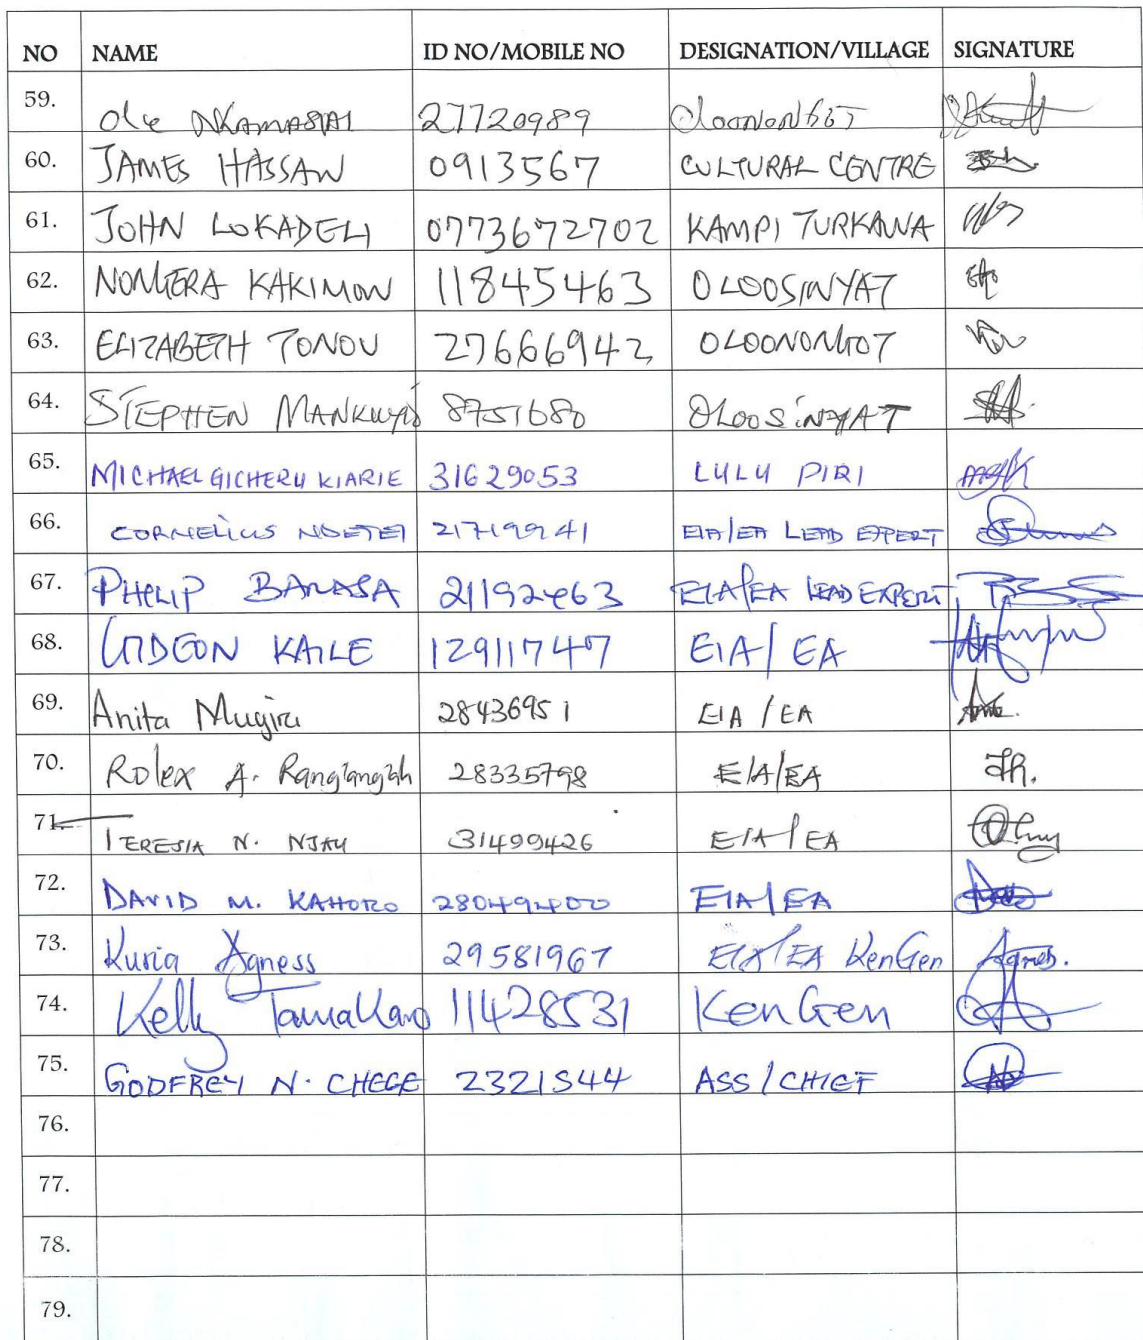 NO NAME ID NO/MOBILE NO DESIGNATION/VILLAGE SIGNATURE
59. Ole NKAMASIAI 27720989 OloonoNGOT
60. JAMES HASSAN 0913567 CULTURAL CENTRE
61. JOHN LOKADELI 0773672702 KAMPI TURKANA
62. NONGERA KAKIMON 11845463 OLOOSINYAT
63. ELIZABETH TONOU 27666942 OLOONONGOT
64. STEPHEN 8751680 OLOOSiNYAT
65. MICHAEL GICHERU KIARIE 31629053 LULU PIRI
66. CORNELIUS NDETEI 21719941 EIA/EA LEAD EXPERT
67. PHELIP BARASA 21192463 EIA/EA LEAD EXPERT
68. GIDEON KAILE 129117407 EIA/ EA
69. Anita Mugiru 28436951 EIA / EA
70. Rolex A. 28335798 EIA/EA
71. TERESIA N. NJAU 31499426 EIA/EA
72. DAVID M. KAHORO 280494400 EIA/EA
73. Kuria Agness 29581967 EIA/EA KenGen Agness.
74. Kelly 11428531 KenGen
75. GODFREY N. CHEGE 2321544 ASS / CHIEF
76.
77.
78.
79.